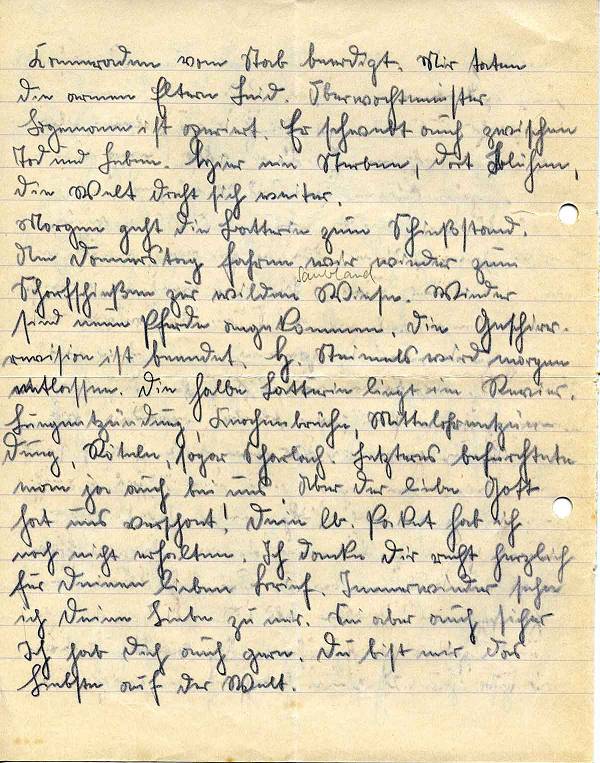 Kameraden vom Stab beerdigt. Mir taten
die armen Eltern Leid. Überwachtmeister
ist operiert. Er schwebt auch zwischen
Tod und Leben. hier ein Sterben, dort Blühen,
die Welt dreht sich weiter.
Morgen geht die Batterie zum Schießstand.
Am Donnerstag fahren wir wieder zum
Sandland
Scharfschießen zur wilden Wiese. Wieder
sind neue Pferde angekommen. Die Geschirr-
revision ist beendet. H. wird morgen
entlassen. Die halbe Batterie liegt im Revier.
Lungentzündung, Knochenbrüche, Mittelohrentzün-
dung, Röteln, sogar Scharlach. Letzteres befürchtete
man ja auch bei uns. Aber der liebe Gott
hat uns verschont! Dein lb. Paket hab ich
noch nicht erhalten. Ich danke Dir recht herzlich
für Deinen lieben Brief. Immerwieder sehe
ich Deine Liebe zu mir. Sei aber auch sicher
Ich hab Dich auch gern. Du bist mir das
Liebste auf der Welt.